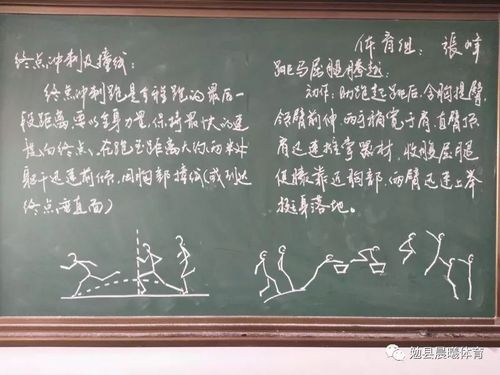 体育组：張峰
终点冲刺及撞线：
终点冲刺跑是全程跑的最后一
段距离，要以全身力量，保持最大的速
度向终点，在跑至距离大约两米时
躯干迅速前倾，用胸部撞线（或到达
终点垂直面）
跳马屈腿腾越：
动作：助跑起跳后，含胸提臀，
领臂前伸，两手稍宽于肩，直臂顶
肩迅速推撑器材，收腹屈腿
使膝靠近胸部，两臂迅速上举
挺身落地。
勉县晨曦体育